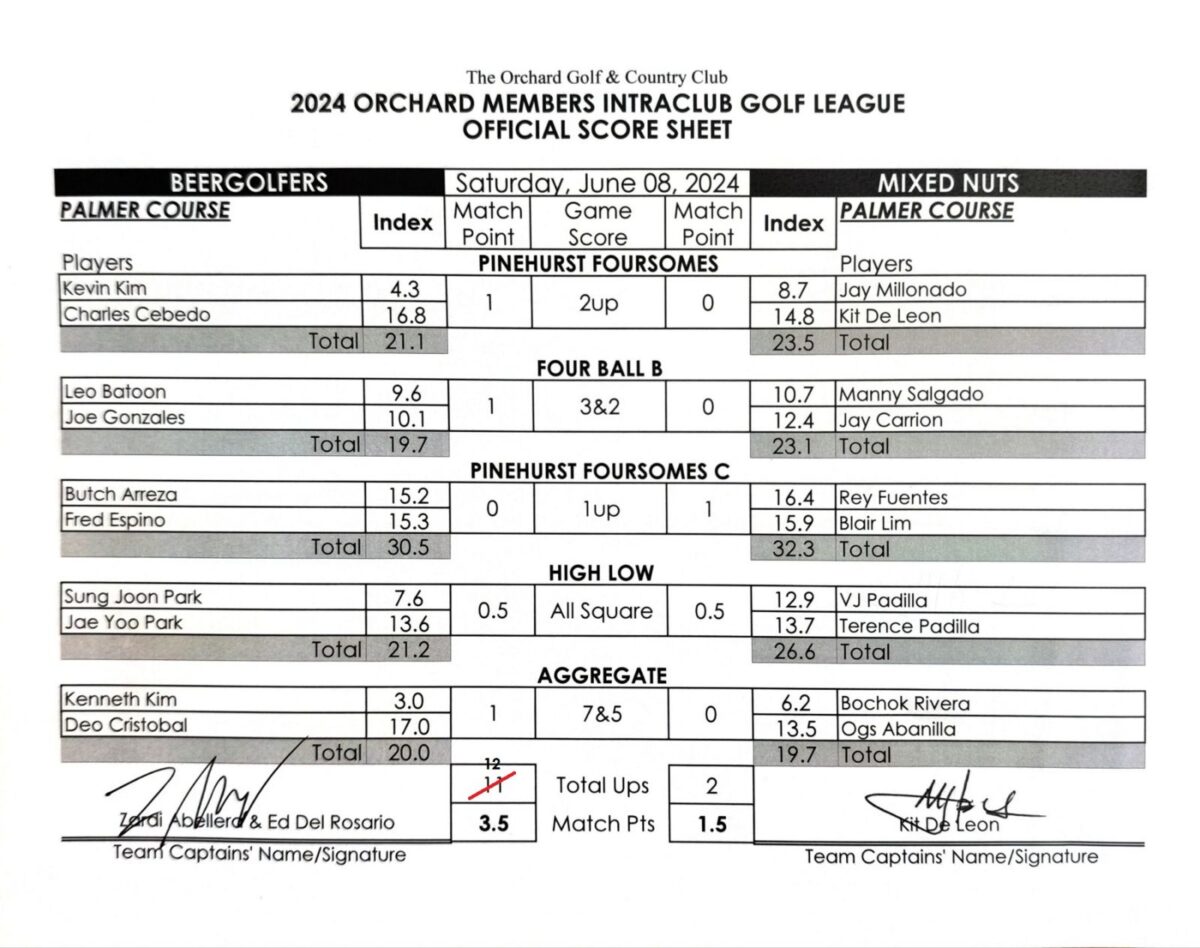 The Orchard Golf & Country Club
2024 ORCHARD MEMBERS INTRACLUB GOLF LEAGUE
OFFICIAL SCORE SHEET
BEERGOLFERS Saturday, June 08, 2024 MIXED NUTS
PALMER COURSE Index Match Point Game Score Match Point Index PALMER COURSE
Players PINEHURST FOURSOMES Players
Kevin Kim 4.3 1 2up 0 8.7 Jay Millonado
Charles Cebedo 16.8 14.8 Kit De Leon
Total 21.1 23.5 Total
FOUR BALL B
Leo Batoon 9.6 1 3&2 0 10.7 Manny Salgado
Joe Gonzales 10.1 12.4 Jay Carrion
Total 19.7 23.1 Total
PINEHURST FOURSOMES C
Butch Arreza 15.2 0 1up 1 16.4 Rey Fuentes
Fred Espino 15.3 15.9 Blair Lim
Total 30.5 32.3 Total
HIGH LOW
Sung Joon Park 7.6 0.5 All Square 0.5 12.9 VJ Padilla
Jae Yoo Park 13.6 13.7 Terence Padilla
Total 21.2 26.6 Total
AGGREGATE
Kenneth Kim 3.0 1 7&5 0 6.2 Bochok Rivera
Deo Cristobal 17.0 13.5 Ogs Abanilla
Total 20.0 19.7 Total
12
11 Total Ups 2
Zardi Abellera & Ed Del Rosario 3.5 Match Pts 1.5 Kit De Leon
Team Captains' Name/Signature Team Captains' Name/Signature